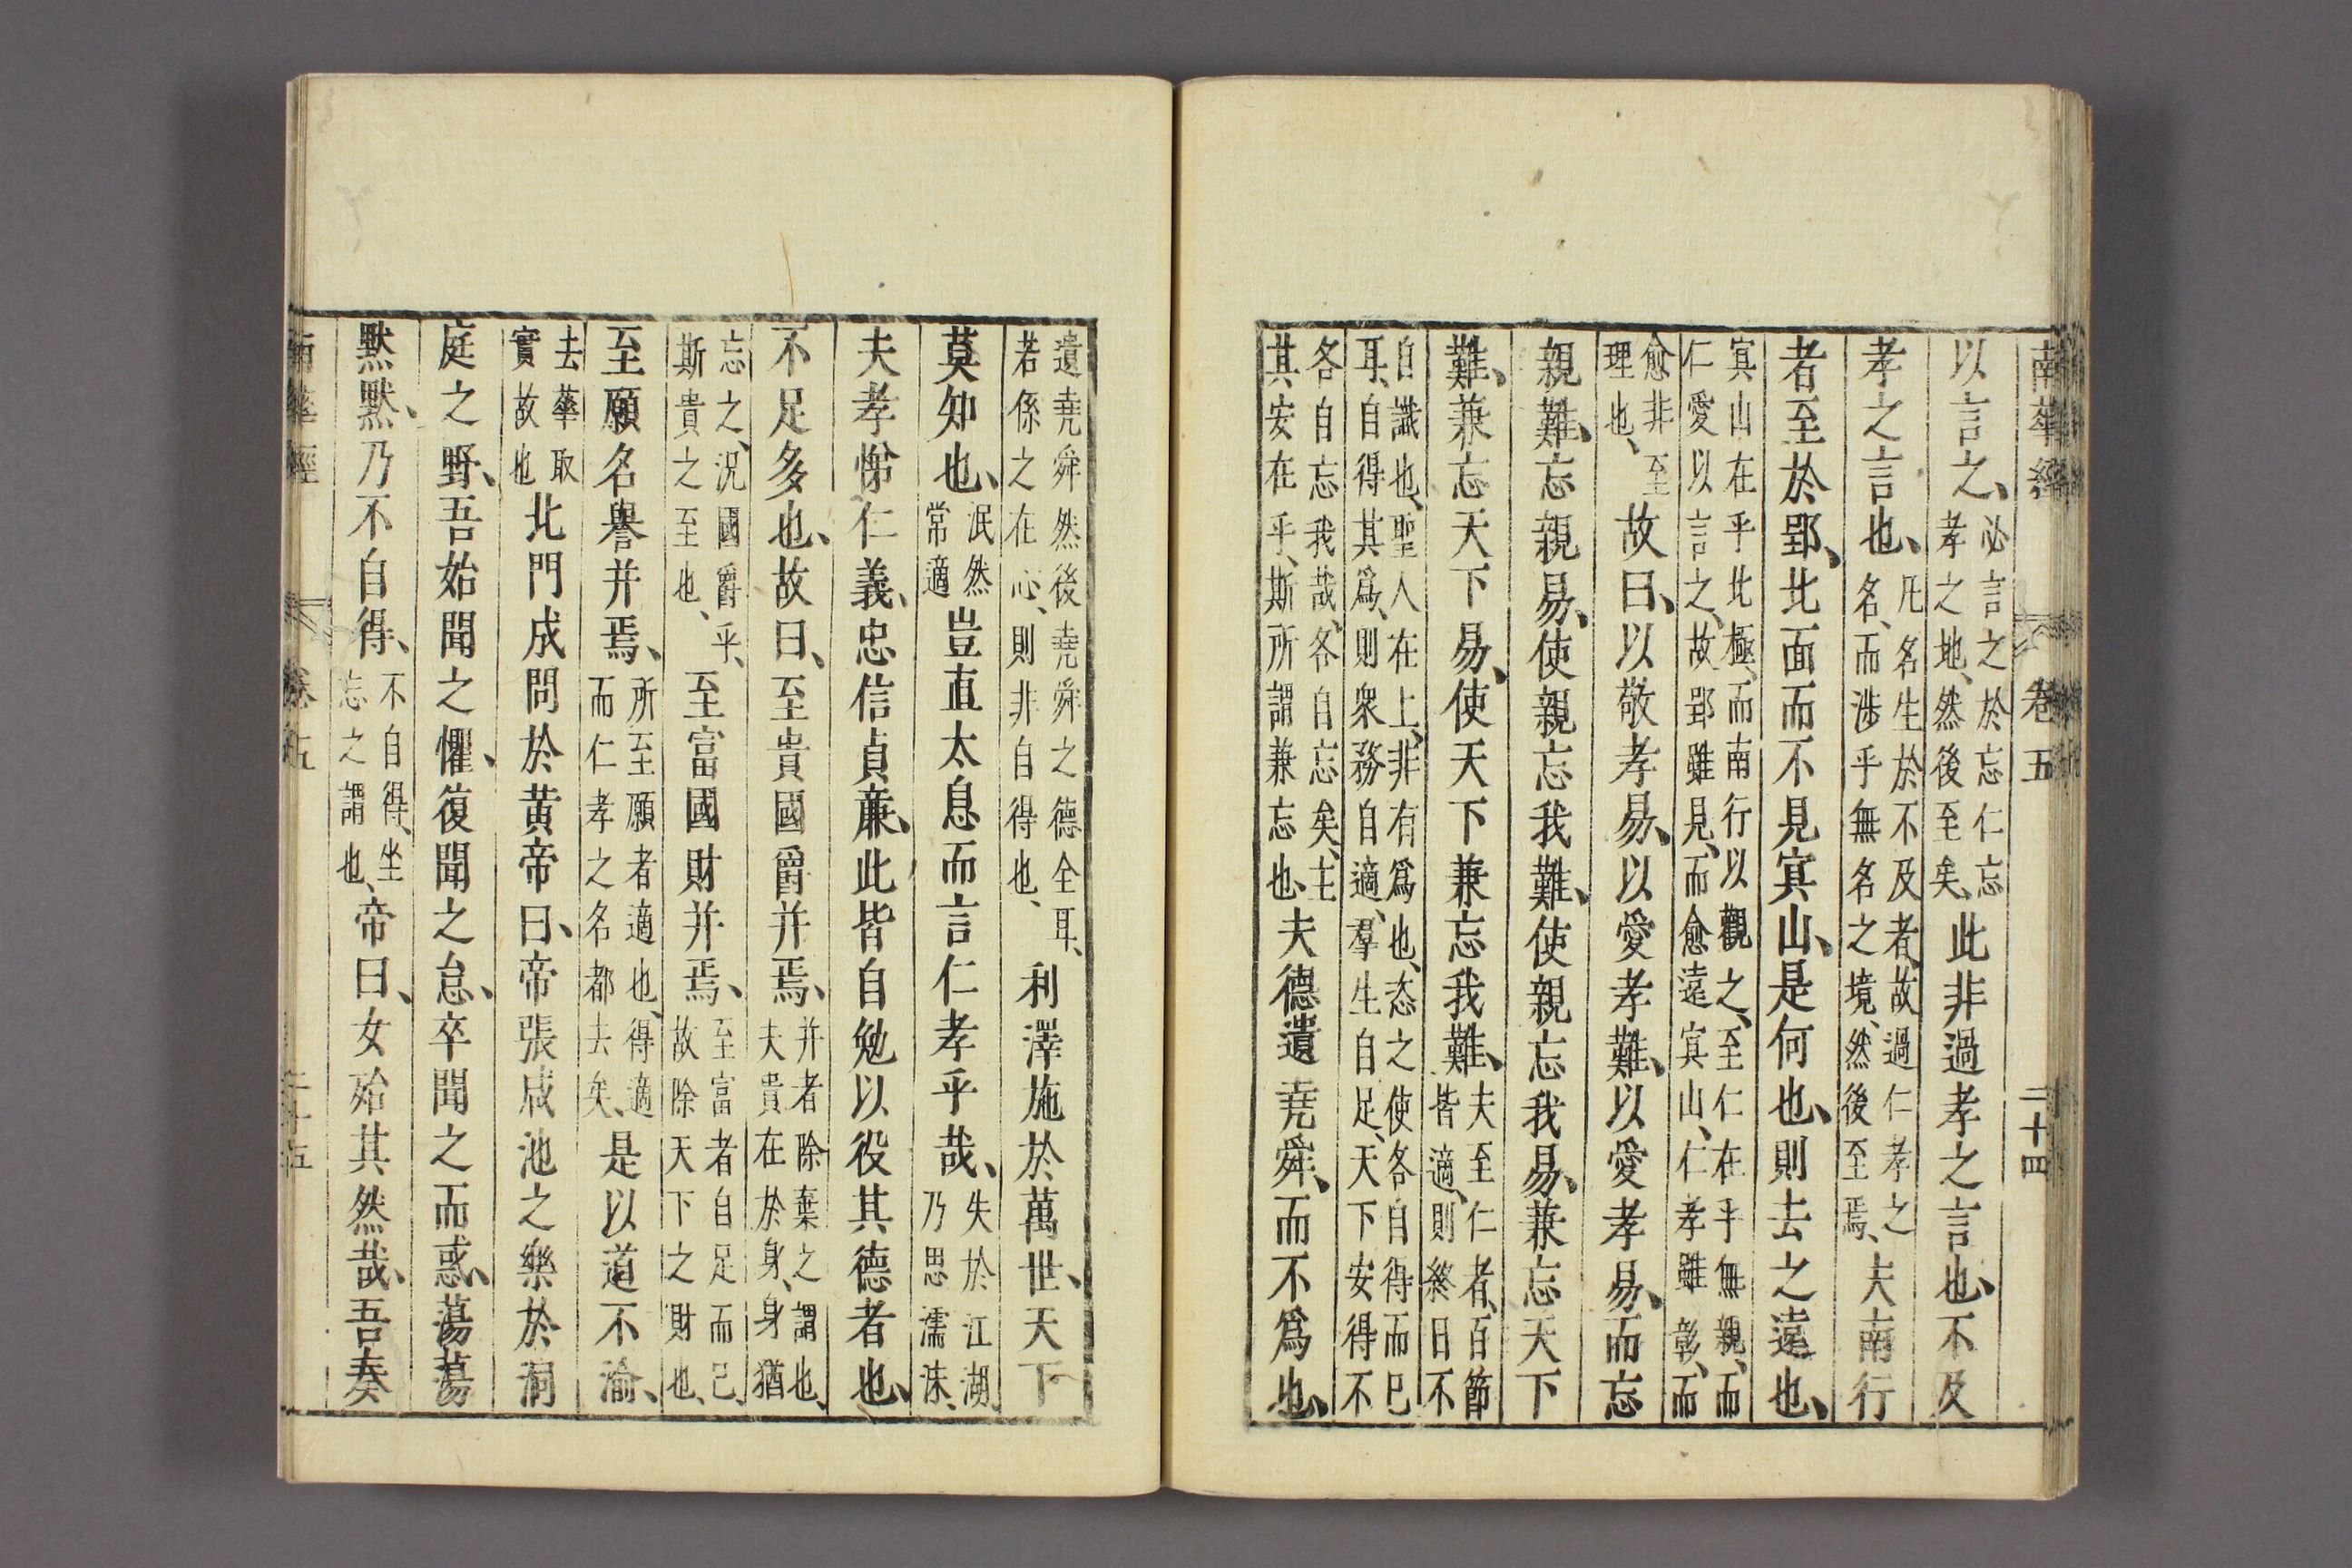 南華經 卷五 二十四
以言之、必言之於忘仁忘孝之地、然後至矣、此非過孝之言也、不及
孝之言也、凡名生於不及者、故過仁孝之名、而涉乎無名之境、然後至焉、夫南行
者至於郢、北面而不見冥山、是何也、則去之遠也、
冥山在乎北極、而南行以觀之、至仁在乎無親、而仁愛以言之、故郢雖見、而愈遠冥山、仁孝雖彰、而
愈非至理也、故曰、以敬孝易、以愛孝難、以愛孝易、而忘
親難、忘親易、使親忘我難、使親忘我易、兼忘天下
難、兼忘天下易、使天下兼忘我難、夫至仁者、百節皆適、則終日不
自識也、聖人在上、非有爲也、恣之使各自得而已耳、自得其爲、則衆務自適、羣生自足、天下安得不
各自忘我哉、各自忘矣、主其安在乎、斯所謂兼忘也、夫德遺堯舜、而不爲也、
遺堯舜然後堯舜之德全耳、若係之在心、則非自得也、利澤施於萬世、天下
莫知也、泯然常適豈直太息而言仁孝乎哉、失於江湖、乃思濡沫、
夫孝悌仁義、忠信貞廉、此皆自勉以役其德者也、
不足多也、故曰、至貴國爵并焉、并者除棄之謂也、夫貴在於身、身猶
忘之、況國爵乎、斯貴之至也、至富國財并焉、至富者自足而已、故除天下之財也、
至願名譽并焉、所至願者適也、得適而仁孝之名都去矣、是以道不渝、
去華取實故也北門成問於黃帝曰、帝張咸池之樂於洞
庭之野、吾始聞之懼、復聞之怠、卒聞之而惑、蕩蕩
默默、乃不自得、不自得、坐忘之謂也、帝曰、女殆其然哉、吾奏
南華經 卷五 二十五